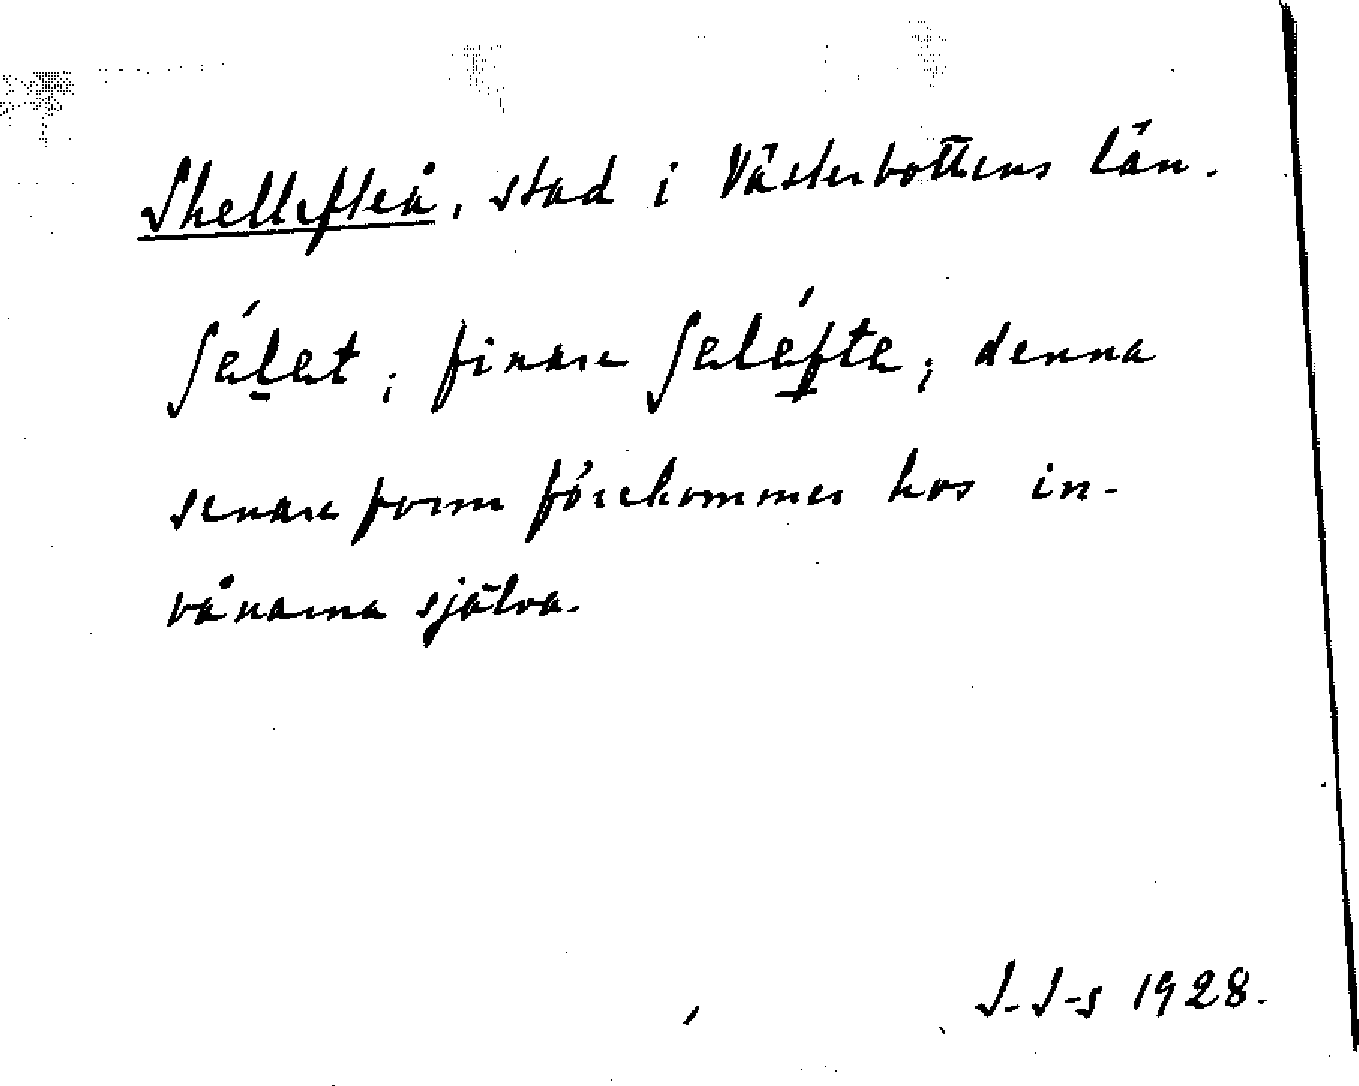 Skellefteå, stad i Västerbottens län.
ʃél̠et; finare ʃeléf̠te; denna
senare form förekommer hos in-
vånarna själva.
J. J-s 1928.